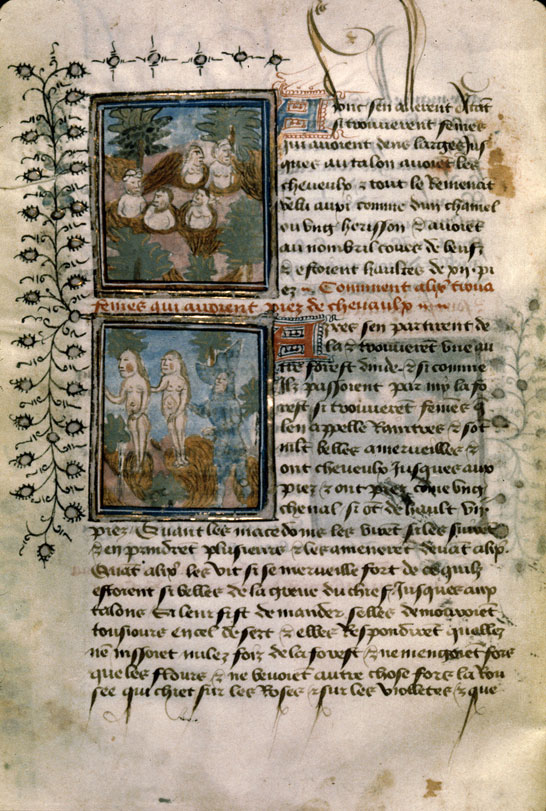 Dont sen allerent & tant
si trouverent femes
qui avoient dens larges jus
ques au talon avoiet les
cheveulx & tout le Remenat
velu aussi comme dun chamel
ou ung herisson & avoiet
au nombril coues de beufz
& estoient haultes de xii pi
ez Comment alix trouva
femes qui avoient piez de chevaulx
Apres sen partirent de
la & trouveret une au
tre forest dinde & si comme
Ilz passoient par my la fo
rest si trouveret femes q
len appelle & sot
mlt belles a merveilles &
ont cheveulx jusques aux
piez & ont piez come ung
cheval si ot de hault vii
piez Quant les macedoms les viret si les
& en prindret plusieurs & les ameneret devat alix
Quat alix les vit si se merveille fort de ce quilz
estoient si belles de la queue du chief jusques aux
talons Si leur fist demander selles demouroiet
tousiours en cel desert & elles Respondiret quelles
ne nissoiet nulez foiz de la forest & ne mengoiet fors
que les flours & ne bevoiet autre chose fors la Rou
see qui chiet sur les Roses & sur les violletes & que